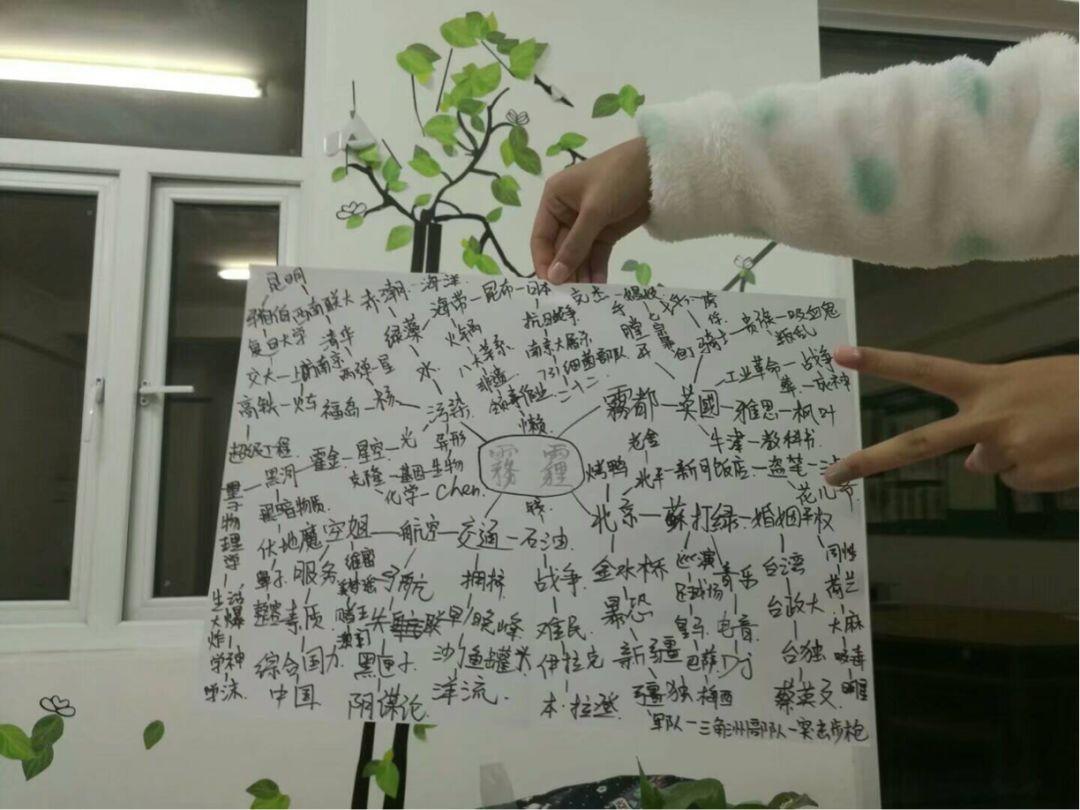 昆明
西南联大
赤潮-海洋
海带-昆布-日本
复旦大学
清华
绿藻
火锅
抗日战争
八大菜系
南京大屠杀
731细菌部队
二十二
非遗
水
交大-上海
南京
两弹一星
高铁-火车
福岛-核
污染
懒
超级工程
黑河
霍金-星空-光
异形
克隆-基因-生物
化学-Chen
黑暗物质
量子物理学
霧霾
霧都-英國-雅思-枫叶
骑士-贵族-吸血鬼
叛乱
工业革命-战争
牛津-教科书
老舍
烤鸭
北平-新月饭店-盗笔
花儿爷
北京-蘇打绿-婚姻平权
伏地魔
空姐-航空-交通-石油
鼻子
服务
拥挤
战争
金水桥
巡演
音乐
台湾
同性
荷兰
素质
赌王
澳门
失联
早晚峰
难民
暴恐
皇马
电音
台政大
大麻
吸毒
综合国力
黑匣子
沙丁鱼罐头
伊拉克
新疆
巴萨
Dj
台独
中国
阴谋论
洋流
本·拉登
疆独
梅西
蔡英文
军队-三角洲部队-突击步枪
生活大爆炸